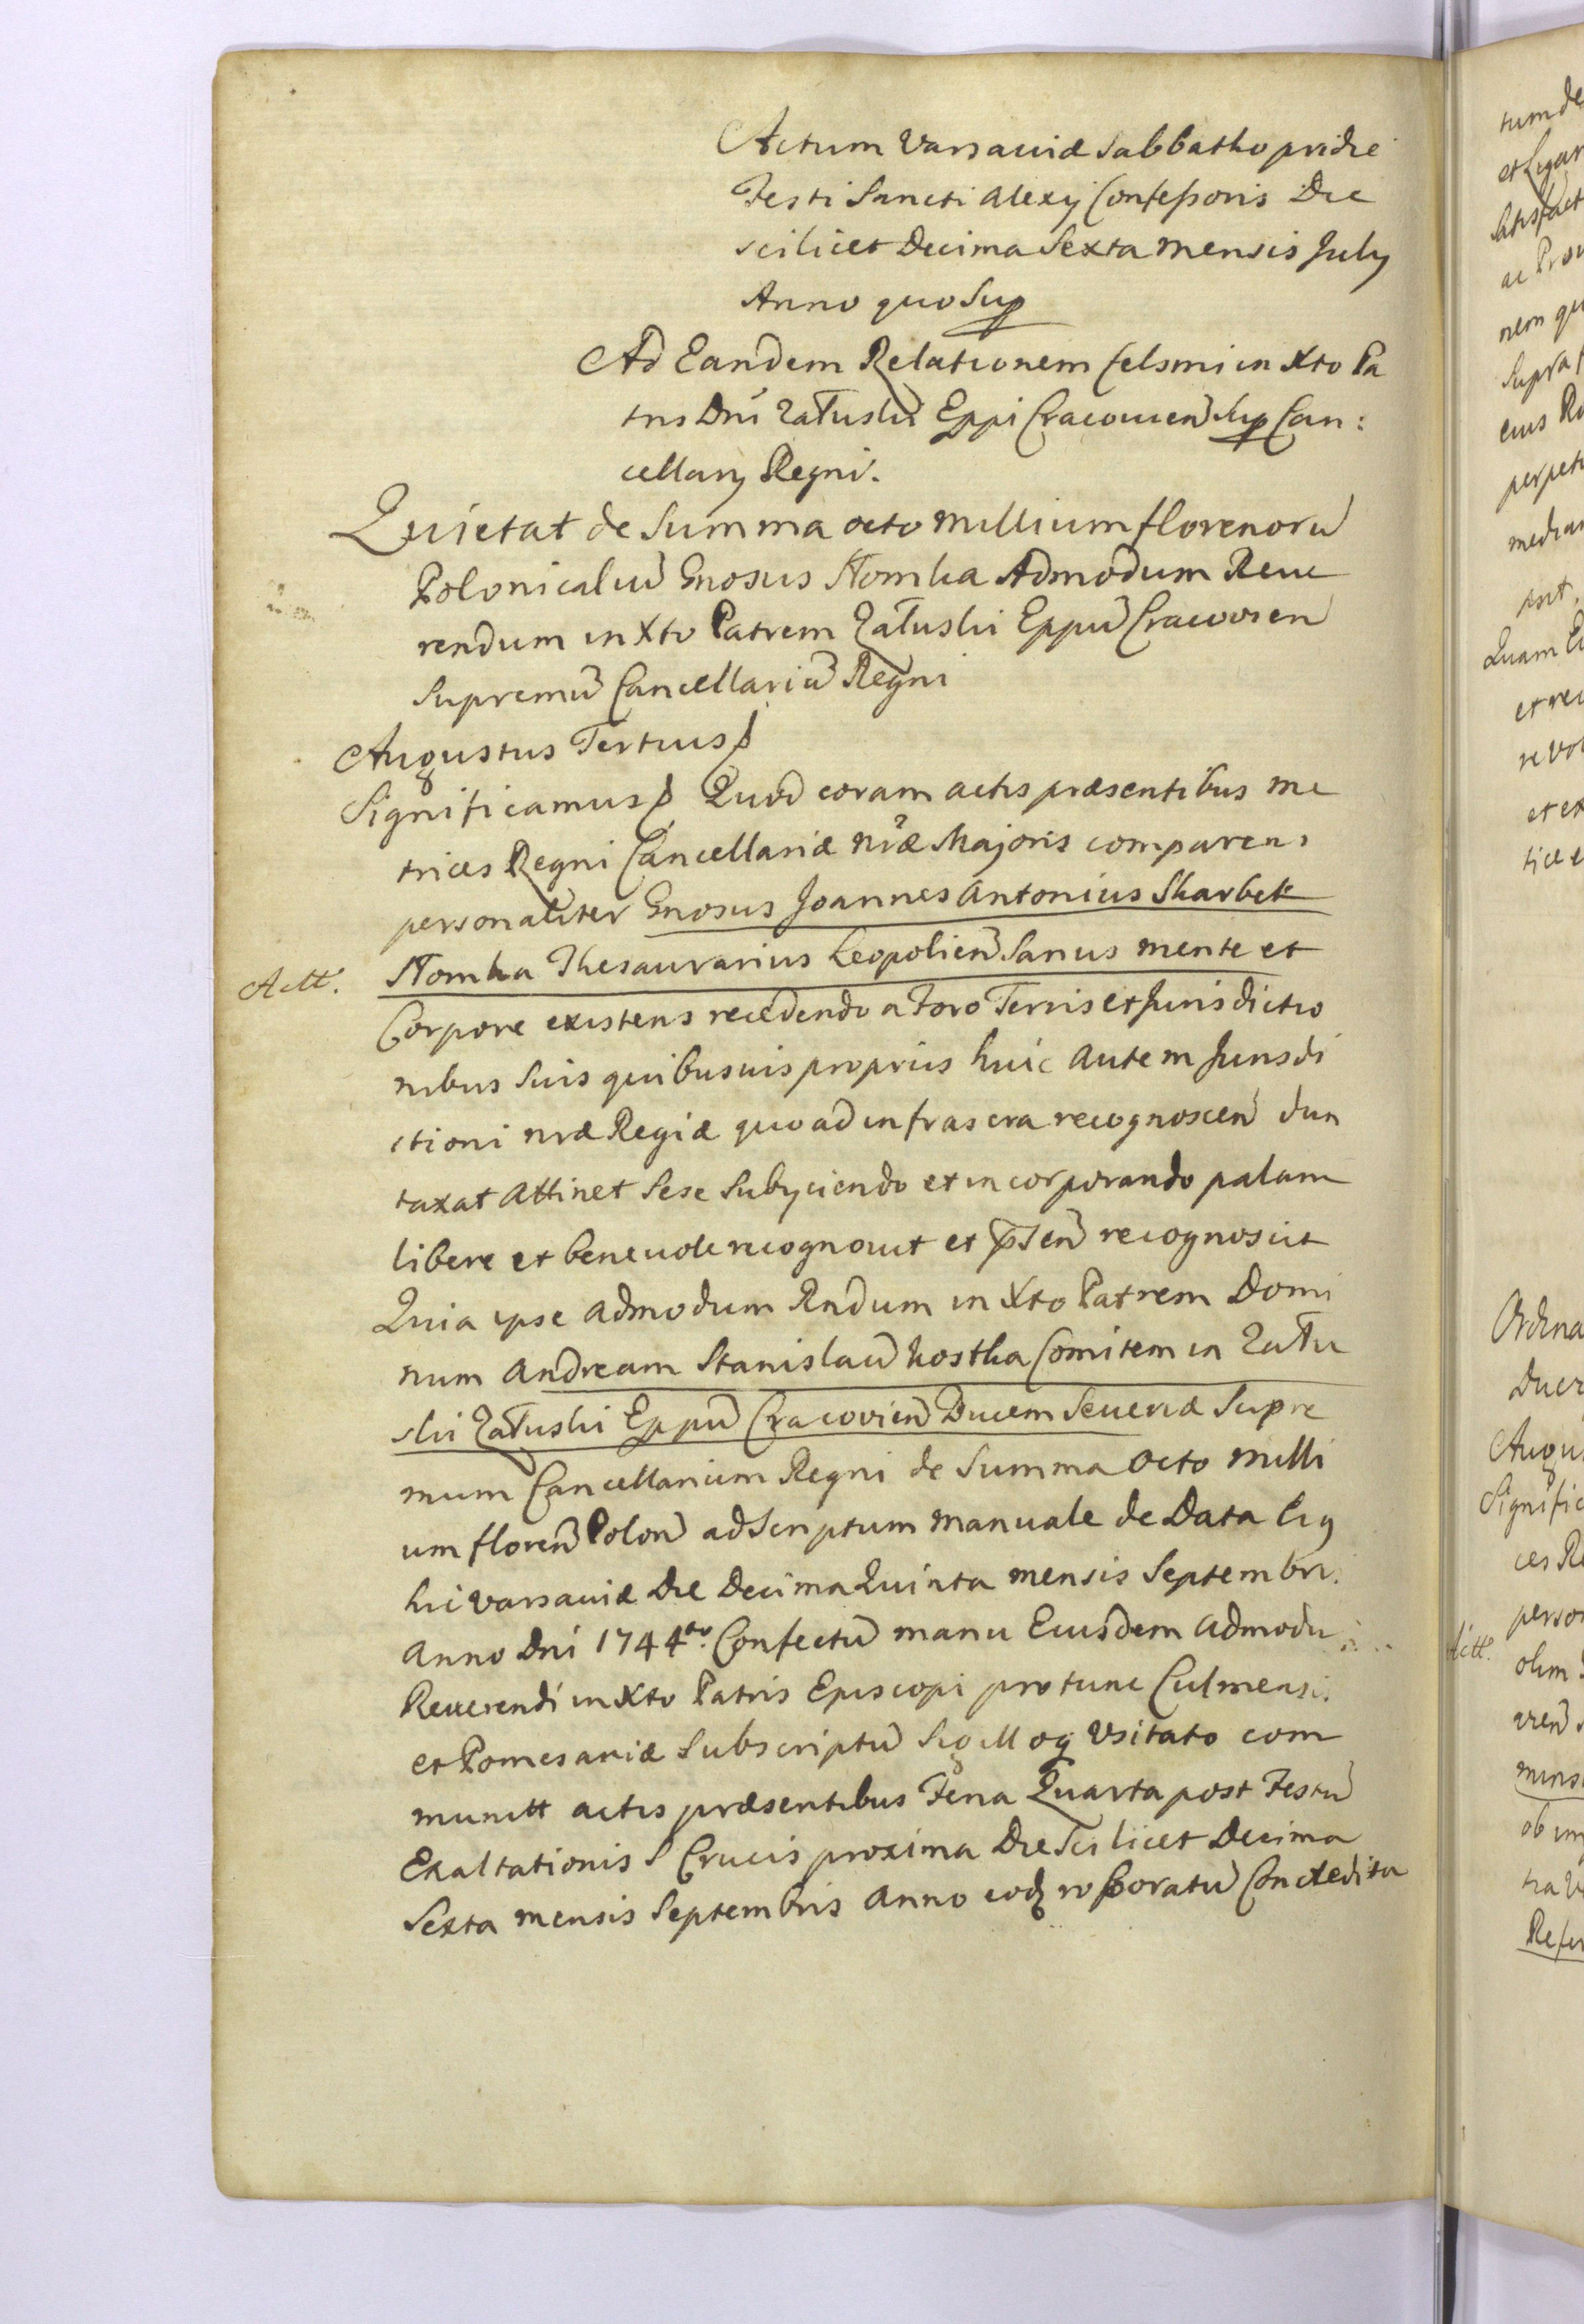 Actum Varsaviæ Sabbatho pridie
Festi Sancti Alexij Confessoris Die
scilicet Decima Sexta mensis July
Anno quo Sup
Ad Eandem Relationem Celsmi in Xto Pa
tris Dni Załuski Eppi Cracovien Sup Can:
cellarij Regni.
Quietat de Summa octo millium florenorū
Polonicaliū Gnosus Słomka Admodum Reue
rendum in Xto Patrem Załuski Eppū Cracovien
Supremū Cancellariū Regni
Augustus Tertius
Significamus Quod coram actis præsentibus me
trices Regni Cancellariæ nræ Majoris comparens
personaliter Gnosus Joannes Antonius Skarbek
Actt. Słomka Thesaurarius Leopolien Sanus mente et
Corpore existens recedendo a Foro Terris et Jurisdictio
nibus Suis quibusuis proprijs huic autem Jurisdi
ctioni nræ Regiæ quoad infrascra recognoscen dun
taxat Attinet Sese Subijciendo et incorporando palam
libere et beneuole recognouit et recognoscit
Quia ipse admodum Rndum in Xto Patrem Domi
num Andream Stanislaū Kostka Comitem in Zału
ski Załuski Eppū Cracovien Ducem Seueriæ Supre
mum Cancellarium Regni de Summa octo milli
um floren Polon ad Scriptum manuale de Data
Varsaviæ Die Decima Quinta mensis Septembri
Anno Dni 1744to Confectū manu Eiusdem admodu
Reuerendi in Xto Patris Episcopi protunc Culmensi
et Pomesaniæ Subscriptū Sigilloq Usitato com
munitt actis præsentibus Feria Quarta post Festū
Exaltationis S Crucis proxima Die Scilicet Decima
Sexta mensis Septembris Anno eodē